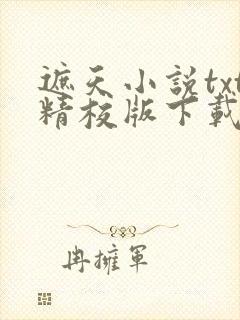 遮天小說txt
精校版下載
冉擁軍